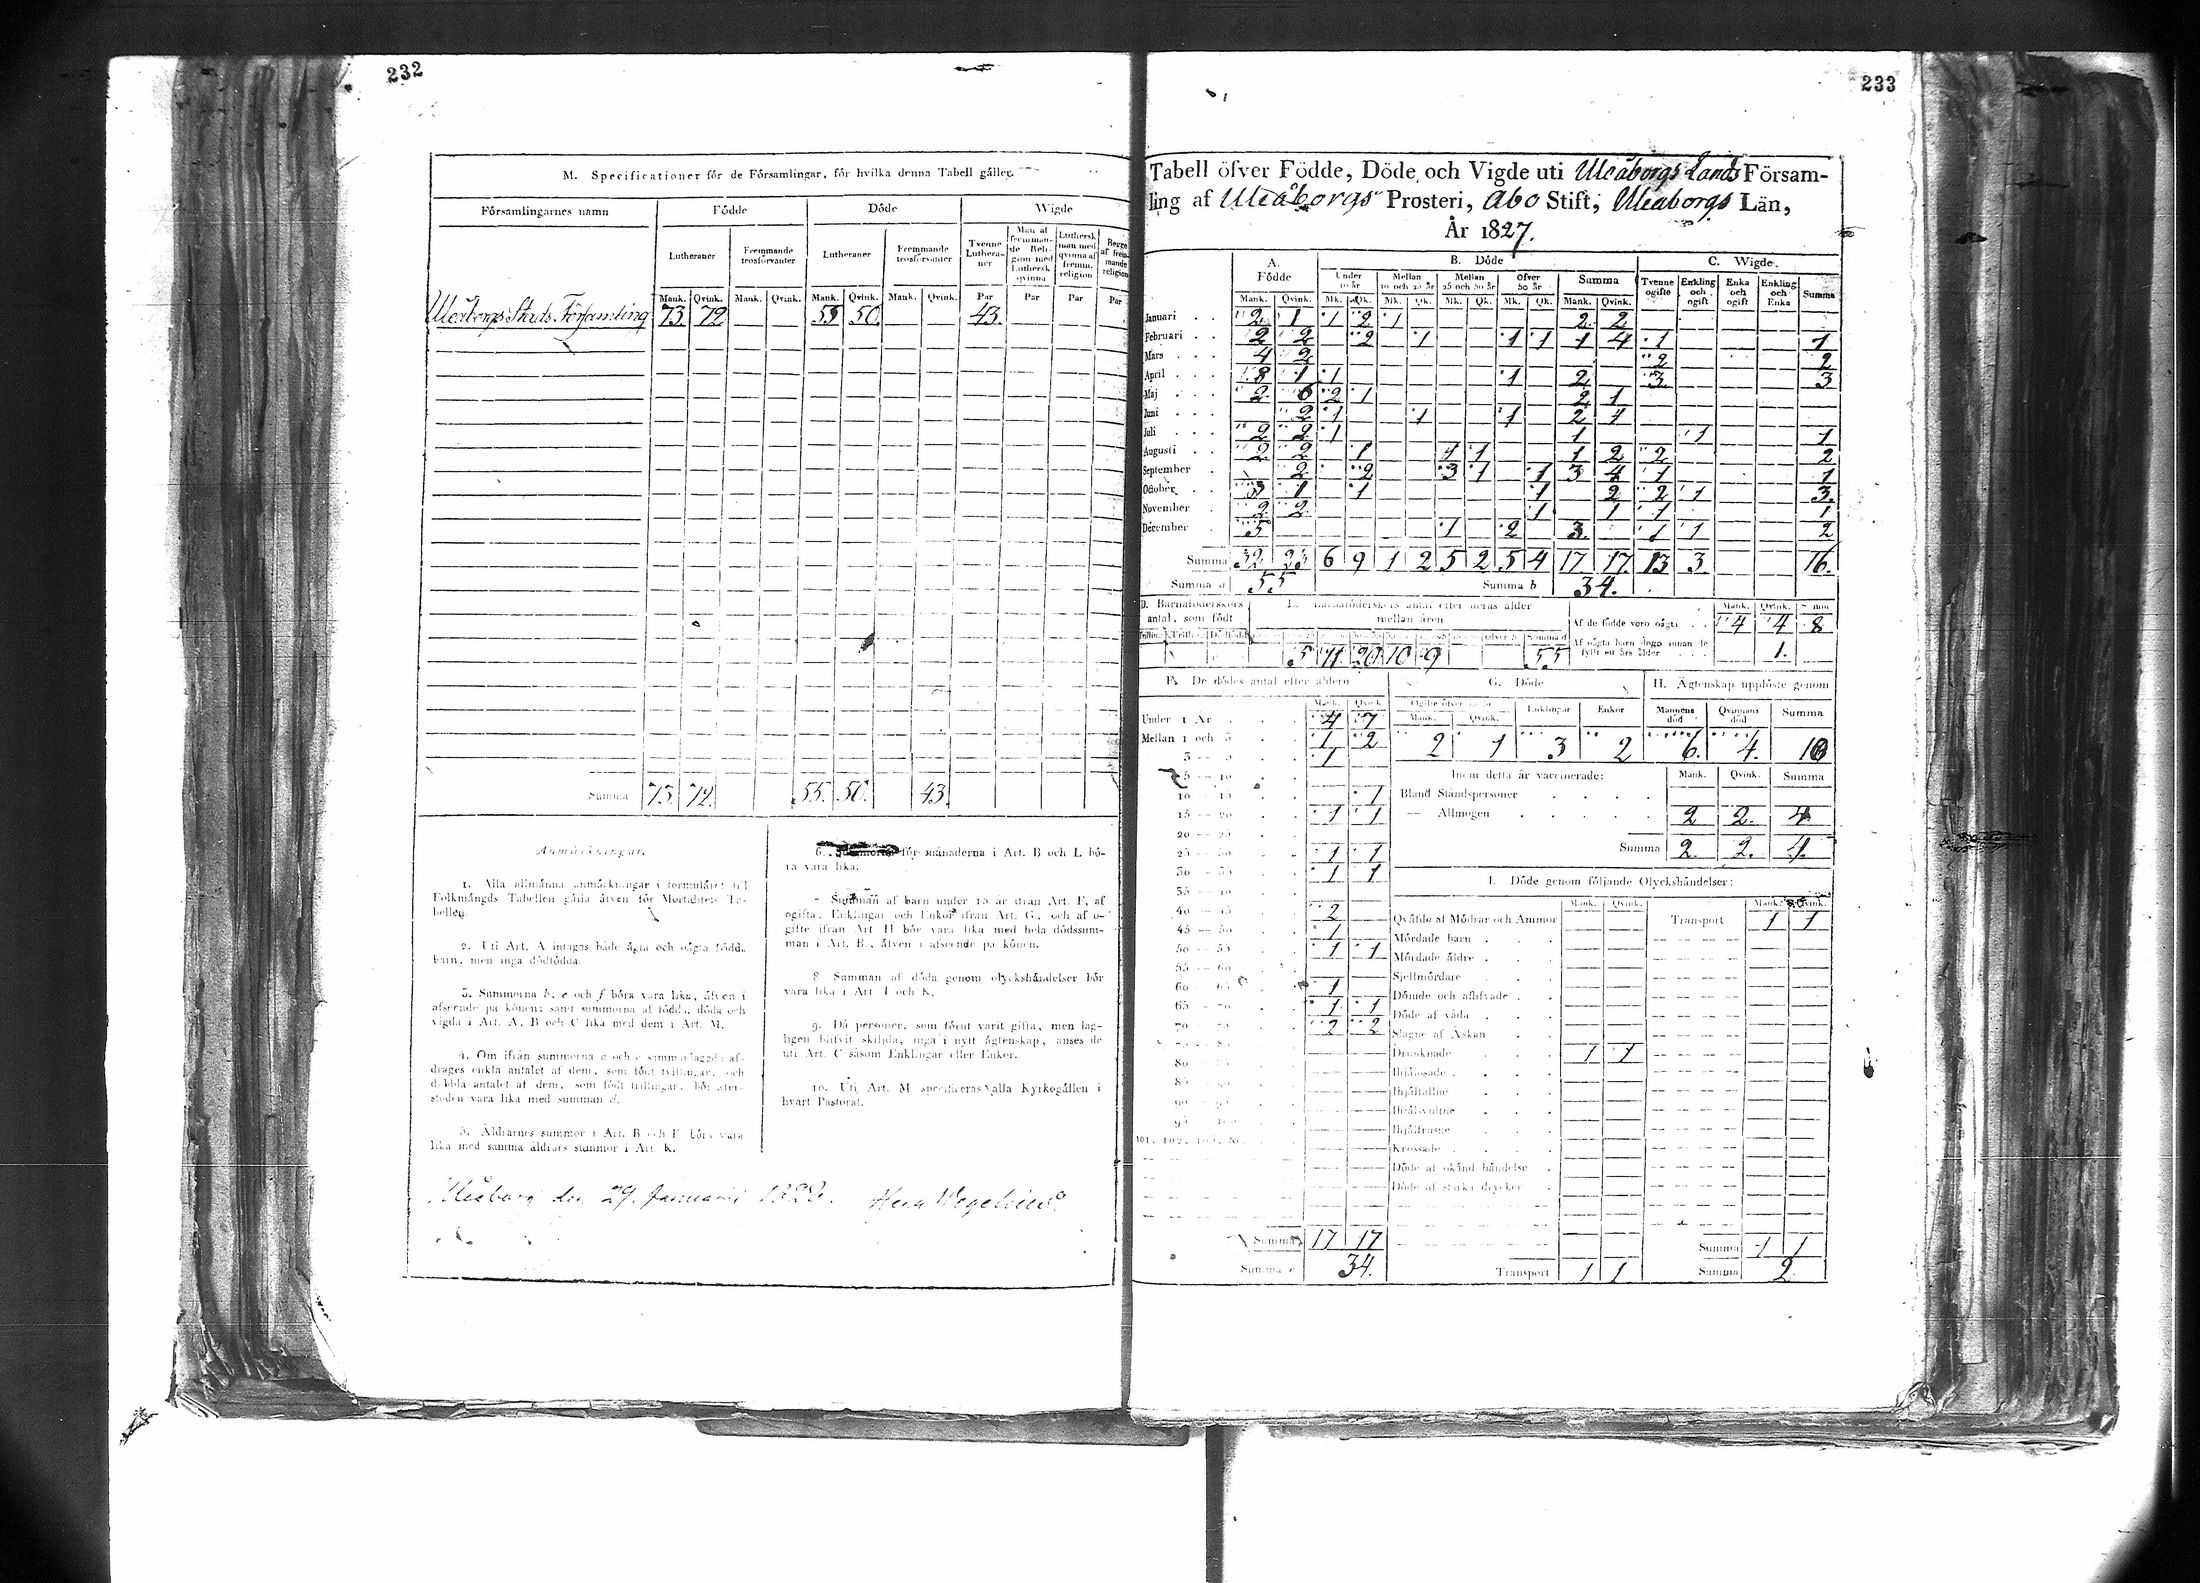 232
M. Specificationer för de Församlingar, för hvilka denna Tabell gäller.
Församlingarnes namn Födde Döde Wigde
Lutheraner Fremmande trosförvanter Lutheraner Fremmande trosförvanter Tvenne Lutheraner Man af fremmande Religion med Luthersk qvinna Luthersk man med qvinna af fremm. religion Begge af fremmande religion
Mank. Qvink. Mank. Qvink. Mank. Qvink. Mank. Qvink. Par Par Par Par
Uleåborgs Stads Församling 73. 72 55 50. 43.
Summa 73. 72. 55. 50. 43.
Anmärkningar.
1. Alla allmänna anmärkningar i formuläret till
Folkmängds Tabellen gälla äfven för Mortalitets Ta-
bellen.
2. Uti Art. A intagas både ägta och oägta födda
barn, men inga dödfödda.
3. Summorna b, e och f böra vara lika, äfven i
afseende på könen; samt summorna af födda, döda och
vigda i Art. A, B och C lika med dem i Art. M.
4. Om ifrån summorna a och c sammanlagde af-
drages enkla antalet af dem, som födt tvillingar, och
dubbla antalet af dem, som födt trillingar, bör åter-
stoden vara lika med summan d.
5. Åldrarnes summor i Art. B och F böra vara
lika med samma åldrars summor i Art. K.
6. Summorna för månaderna i Art. B och L bö-
ra vara lika.
7 Summan af barn under 15 år ifrån Art. F, af
ogifta, Enklingar och Enkor ifrån Art. G, och af o-
gifte ifrån Art H bör vara lika med hela dödssum-
man i Art. B., äfven i afseende på könen.
8 Summan af döda genom olyckshändelser bör
vara lika i Art I och K.
9. Då personer, som förut varit gifta, men lag-
ligen blifvit skiljda, inga i nytt ägtenskap, anses de
uti Art. C såsom Enklingar eller Enkor.
10. Uti Art. M specificeras alla Kyrkogällen i
hvart Pastorat.
Uleåborg den 29. Januarii 1828. Wegelius
233
Tabell öfver Födde, Döde och Vigde uti Uleåborgs Lands Församling
af Uleåborgs Prosteri, Åbo Stift, Uleåborgs Län,
År 1827.
A. Födde B. Döde C. Wigde.
Under 10 år Mellan 10 och 25 år Mellan 25 och 50 år Öfver 50 år Summa Tvenne ogifte Enkling och ogift Enka och ogift Enkling och Enka Summa
Mank. Qvink. Mk. Qk. Mk. Qk. Mk. Qk. Mk. Qk. Mank. Qvink.
Januari 2 1 1 2 1 2 2
Februari 2 2 2 1 1 1 1 4 1 1
Mars 4 2 2 2
April 8 1 1 1 2 3 3
Maj 2 6 2 1 2 1
Juni 2 1 1 1 2 1
Juli 2 2 1 1 1 1
Augusti 2 2 1 1 1 1 2 2 2
September 2 2 3 1 1 3 4 1 1
October 3 1 1 1 2 2 1 3.
November 2 2 1 1 1 1
December 5 1 2 3. 1 1 2
Summa 32 23 6 9 1 2 5 2 5 4 17 17. 13 3. 16.
Summa a 55 Summa b 34.
D. Barnaföderskors antal, som födt
E. Barnaföderskors antal efter deras ålder mellan åren
Mank. Qvink. Summa
Af de födde voro oägta 4 4 8
Af oägta barn dogo innan de fyllt en års ålder 1.
5 11 20 10 9 55
F. De dödes antal efter åldern G. Döde H. Ägtenskap upplöste genom
Mank. Qvink. Mank. Qvink. Enklingar Enkor Mannens död Qvinnans död Summa
2 1 3 2 6. 4. 10
Under 1 År 4 7
Mellan 1 och 3 1 2
3 — 5 1
5 — 10
10 — 15 1
15 — 20 1 1
20 — 25
25 — 30 1 1
30 — 35 1 1
35 — 40
40 — 45 2
45 — 50 1
50 — 55 1 1
55 — 60
60 — 65 1
65 — 70 1 1
70 — 75 2 2
75 — 80
80 — 85
85 — 90
90 — 95
95 — 100
Summa 17 17
Summa e 34.
Inom detta år vaccinerade: Mank. Qvink. Summa
Bland Ståndspersoner
— Allmogen 2 2. 4
Summa 2. 2. 4.
I. Döde genom följande Olyckshändelser:
Mank. Qvink. Mank. Qvink.
Qväfde af Mödrar och Ammor Transport 1 1
Mördade barn
Mördade äldre
Sjelfmördare
Dömde och aflifvade
Döde af våda
Slagne af Åskan
Drunknade 1 1
Ihjälosade
Ihjälfallne
Ihjälsvultne
Ihjälfrusne
Krossade
Döde af okänd händelse
Döde af starka drycker
Summa 1 1
Transport 1 1. Summa 2.